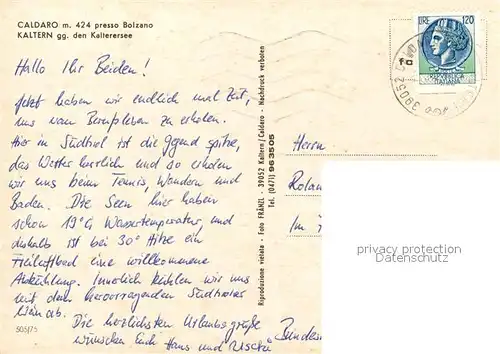 CALDARO m. 424 presso Bolzano
KALTERN gg. den Kalterersee
Hallo Ihr Beiden!
Jetzt haben wir endlich mal Zeit,
uns vom zu erholen.
Hier in Südtirol ist die Gegend spitze,
das Wetter herrlich und so erholen
wir uns beim Tennis, Wandern und
Baden. Die Seen hier haben
schon 19°C Wassertemperatur und
deshalb ist bei 30° Hitze ein
Freiluftbad eine willkommene
Abkühlung. Innerlich kühlen wir uns
mit dem hervorragenden Südtiroler
Wein ab.
Die herzlichsten Urlaubsgrüße
wünschen Euch Hans und Uschi
505/75
Riproduzione vietata - Foto FRÄNZL - 39052 Kaltern / Caldaro - Nachdruck verboten
Tel. (0471) 963505
LIRE 120
REPUBBLICA
ITALIANA
39052
Herrn
Rolan
Im
Bundes
privacy protection
Datenschutz